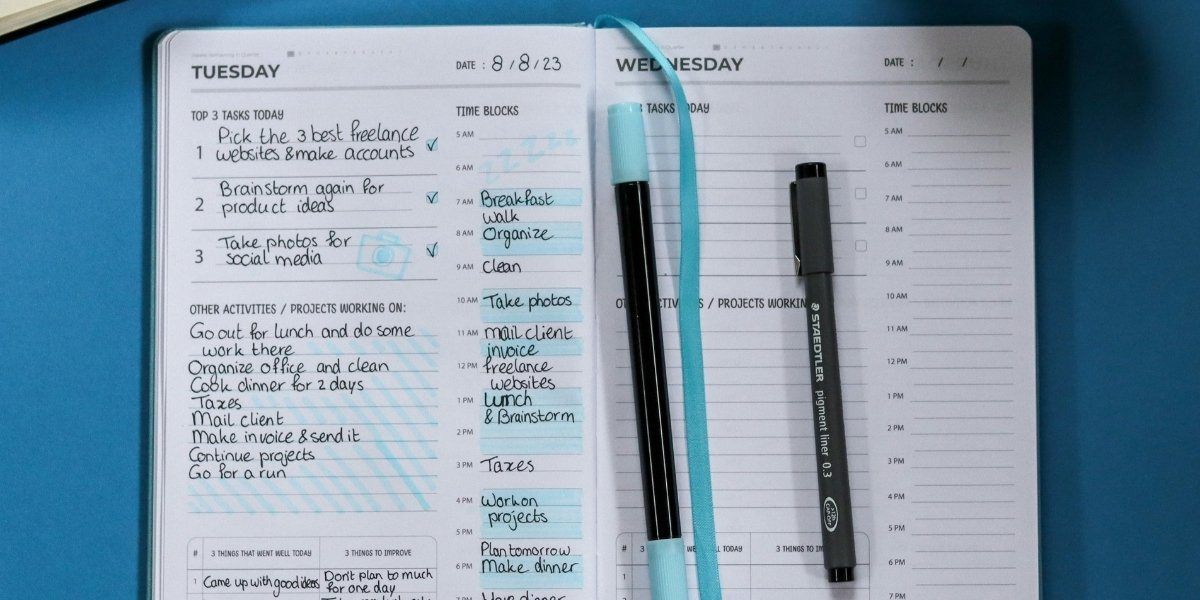 TUESDAY
DATE : 8/8/23
TOP 3 TASKS TODAY
1 Pick the 3 best freelance
websites & make accounts
2 Brainstorm again for
product ideas
3 Take photos for
social media
OTHER ACTIVITIES / PROJECTS WORKING ON:
Go out for lunch and do some
work there
Organize office and clean
Cook dinner for 2 days
Taxes
Mail client
Make invoice & send it
Continue projects
Go for a run
# 3 THINGS THAT WENT WELL TODAY 3 THINGS TO IMPROVE
1 Came up with good ideas Don't plan to much
for one day
TIME BLOCKS
5 AM
zZZZzz
6 AM
7 AM Breakfast
walk
8 AM Organize
9 AM Clean
10 AM Take photos
11 AM mail client
invoice
12 PM freelance
websites
1 PM Lunch
& Brainstorm
2 PM
3 PM Taxes
4 PM Work on
projects
5 PM
Plan tomorrow
6 PM Make dinner
7 PM Have dinner
WEDNESDAY
DATE : / /
TASKS TODAY
OTHER ACTIVITIES / PROJECTS WORKIN
# 3 WELL TODAY 3 THINGS TO IM
1
TIME BLOCKS
5 AM
6 AM
7 AM
8 AM
9 AM
10 AM
11 AM
12 PM
1 PM
2 PM
3 PM
4 PM
5 PM
6 PM
7 PM
STAEDTLER pigment liner 0.3